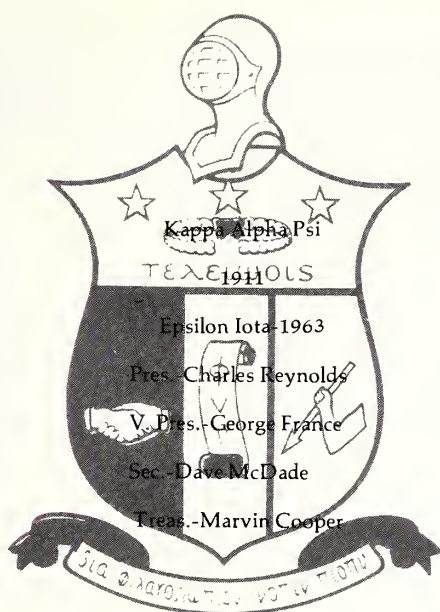 Kappa Alpha Psi
1911
Epsilon Iota-1963
Pres.-Charles Reynolds
V. Pres.-George France
Sec.-Dave McDade
Treas.-Marvin Cooper